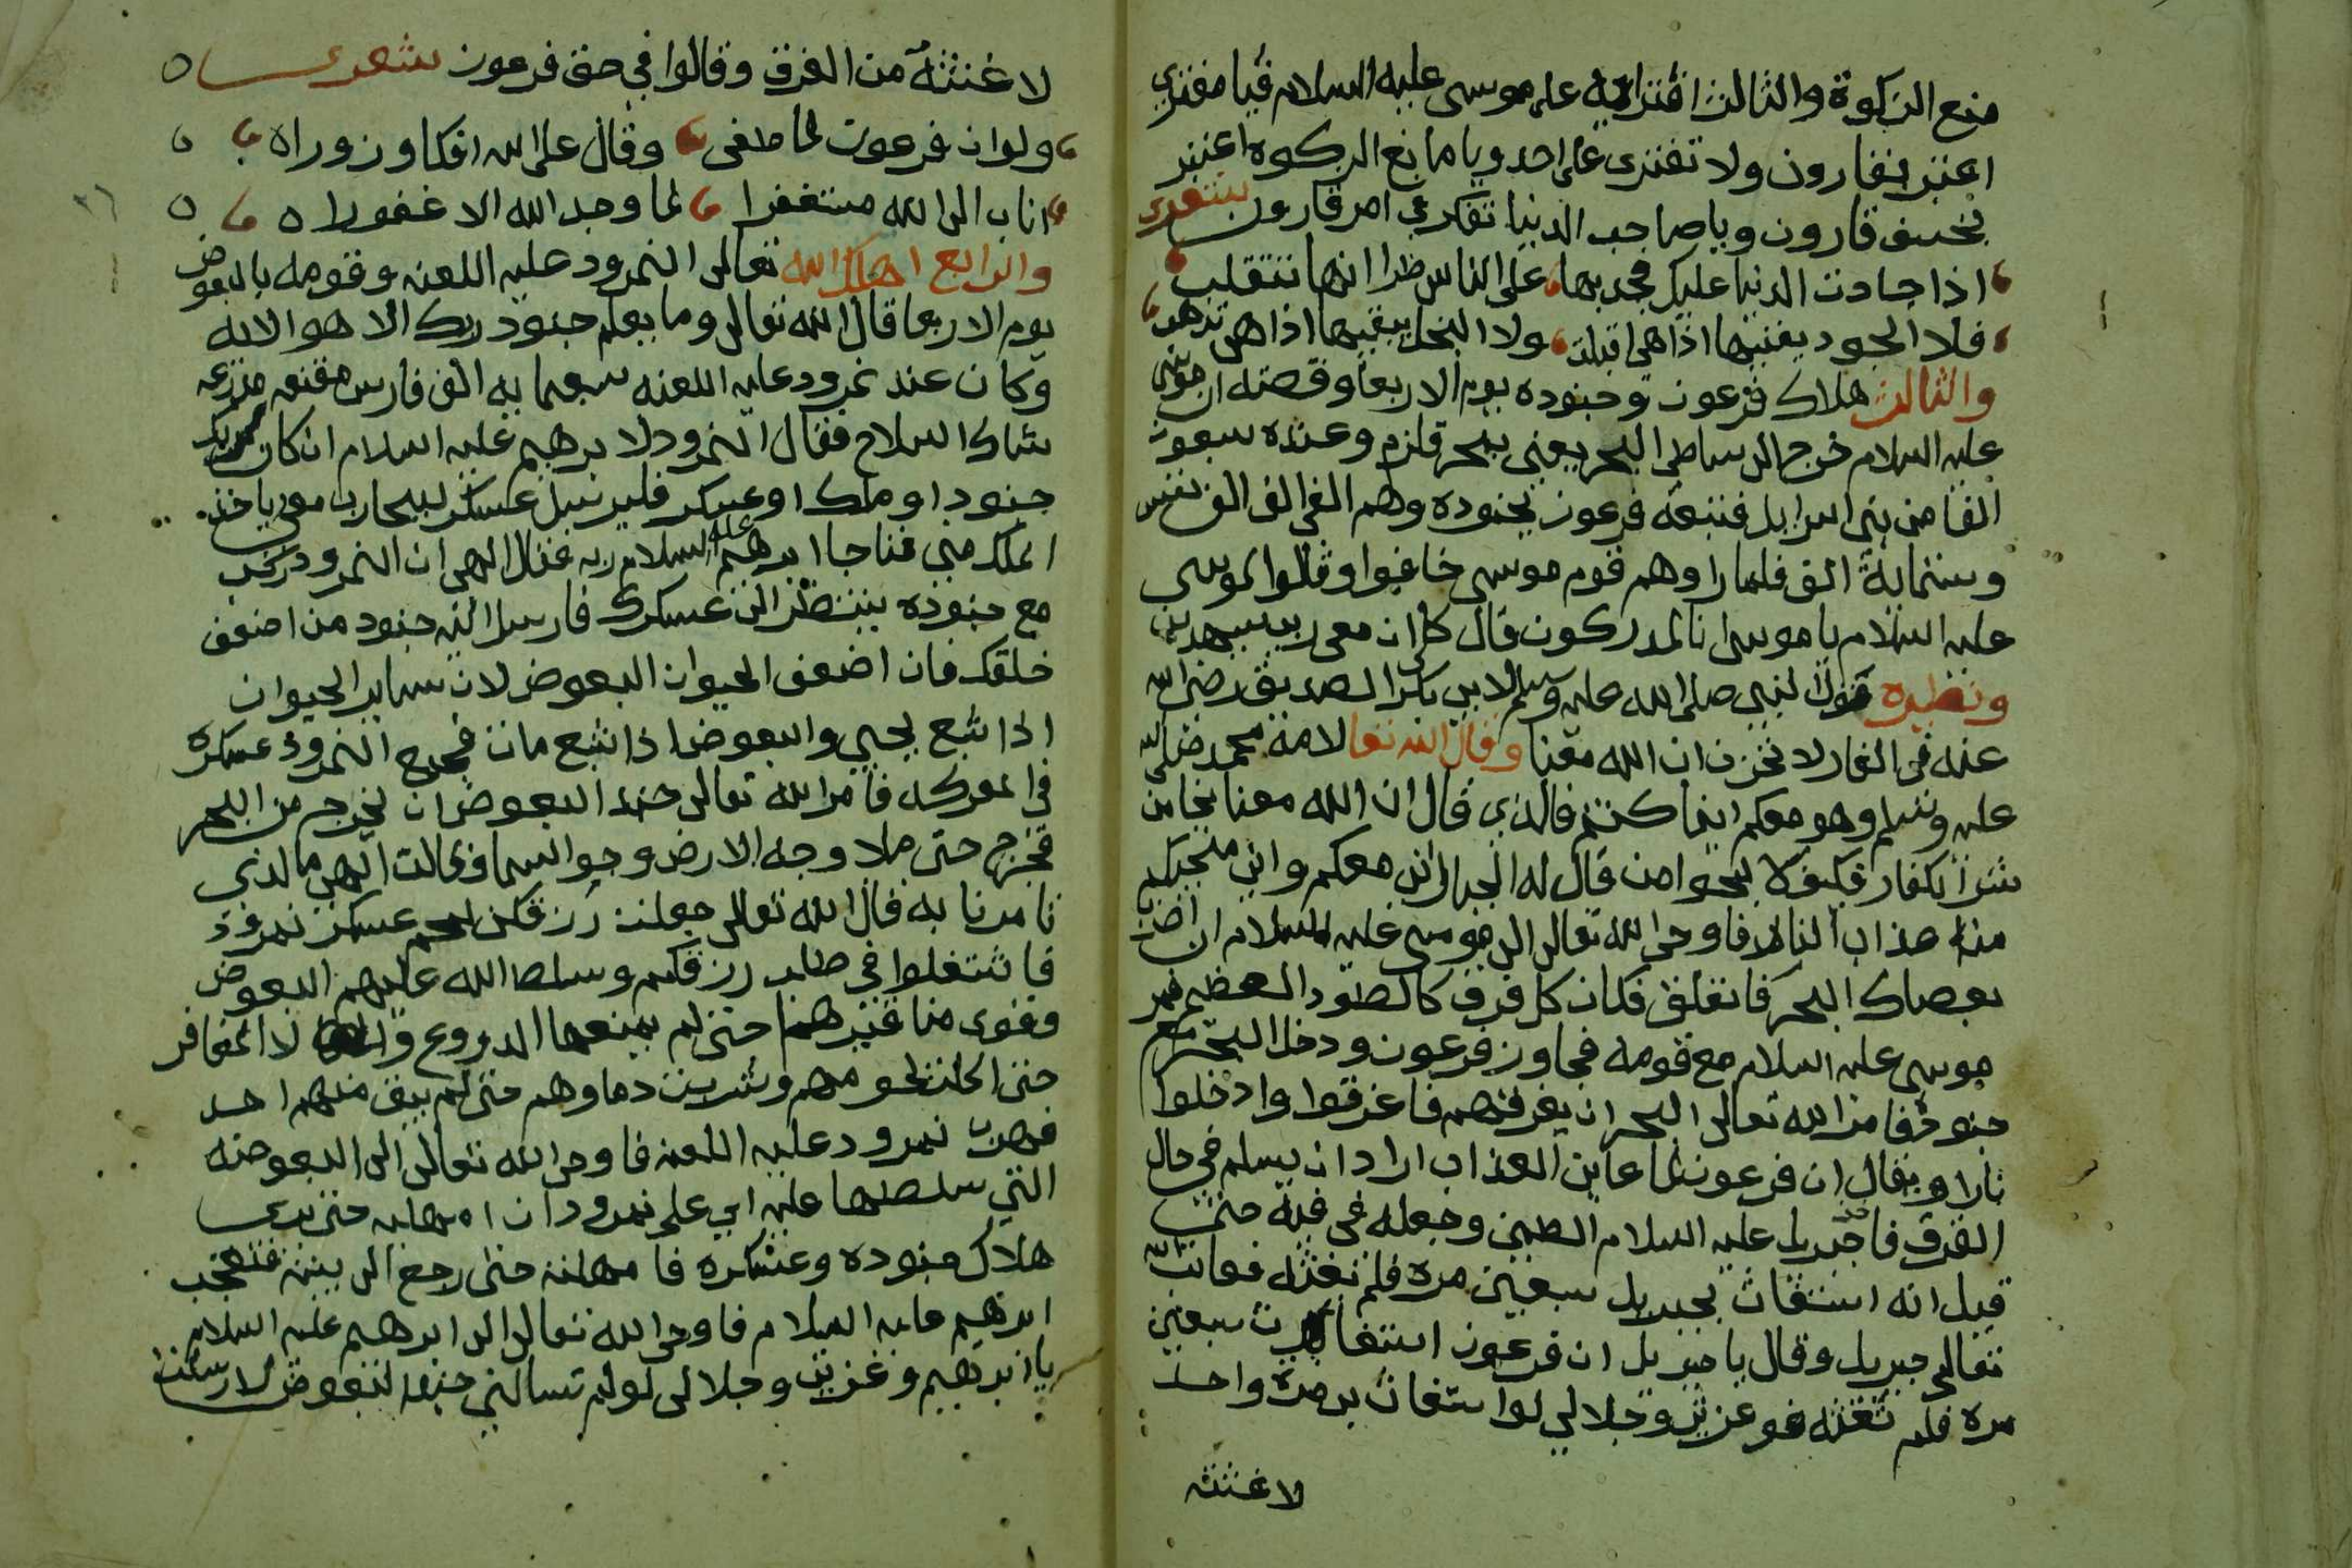 منع الزكوة والثالث افترايه على موسى عليه السلام فيا مفتري
اعتبر بقارون ولا تفترى على احد ويا مانع الزكوة اعتبر
بخسف قارون ويا صاحب الدنيا تفكر في امر قارون شعر
اذا جادت الدنيا عليك فجد بها على الناس طرا انها تتقلب
فلا الجود يفنيها اذا هي اقبلت ولا البخل يبقيها اذا هي تذهب
والثالث هلاك فرعون وجنوده يوم الاربعا وقصته ان موسى
عليه السلام خرج الى ساطي البحر يعني بحر قلزم وعنده سبعون
الفا من بني اسرايل فتبعه فرعون بجنوده وهم الف الف نفس
وستماية الف فلما راوهم قوم موسى خافوا وقالوا لموسى
عليه السلام يا موسى انا لمدركون قال كلا ان معى ربى سيهدين
ونظيره قول النبي صلى الله عليه وسلم لابي بكر الصديق رضى الله
عنه في الغار لا تحزن ان الله معنا وقال الله تعا لامة محمد صلى الله
عليه وسلم وهو معكم اينما كنتم فالذي قال ان الله معنا نجا من
شر الكفار فكيف لا ينجوا من قال له الجبار اني معكم واني منجيكم
من عذاب النار فاوحى الله تعالى الى موسى عليه السلام ان اضرب
بعصاك البحر فانفلق فكان كل فرق كالطود العظيم فمر
موسى عليه السلام مع قومه فجاوز فرعون ودخل البحر مع
جنوده فامر الله تعالى البحر ان يغرقهم فاغرقوا وادخلوا
نارا ويقال ان فرعون لما عاين العذاب اراد ان يسلم في حال
الغرق فاخذ جبريل عليه السلام الطين وجعله في فيه حتى
قيل انه استغاث بجبريل سبعين مرة فلم يغثه فعاتب الله
تعالى جبريل وقال يا جبريل ان فرعون استغاث بك سبعين
مرة فلم تغثه فوعزتي وجلالي لو استغاث بى مرة واحد
لاغثته
لاغثته من الغرق وقالوا في حق فرعون شعر
ولو ان فرعون لما طغى وقال على الله افكا وزورا
اناب الى الله مستغفرا لما وجد الله الا غفورا
والرابع اهلك الله تعالى النمرود عليه اللعنه وقومه بالبعوض
يوم الاربعا قال الله تعالى وما يعلم جنود ربك الا هو الايه
وكان عند نمرود عليه اللعنه سبعمايه الف فارس مقنعه مدرعه
شاك السلاح فقال النمرود لابرهيم عليه السلام ان كان لربك
جنودا وملكا وعسكر فليرسل عسكر ليحارب معى ياخذ
الملك منى فناجا ابرهيم عليه السلام ربه فقال الهى ان النمرود ركب
مع جنوده ينتظر الى عسكرك فارسل اليه جنود من اضعف
خلقك فان اضعف الحيوان البعوض لان ساير الحيوان
اذا شبع يحيي والبعوض اذا شبع مات فجمع النمرود عسكره
في المعركه فامر الله تعالى جند البعوض ان يخرج من البحر
فخرج حتى ملا وجه الارض وجو السما وقالت الهى ما الذى
تامرنا به قال الله تعالى جعلت رزقكن لحم عسكر نمرود
فاشتغلوا في طلب رزقكم وسلط الله عليهم البعوض
وقوى مناقيرهم حتى لم يمنعها الدروع ولا المغافر
حتى اكلت لحومهم وشربت دماوهم حتى لم يبق منهم احد
فهرب نمرود عليه اللعنه فاوحى الله تعالى الى البعوضه
التي سلطها عليه اي على نمرود ان امهليه حتى يرى
هلاك جنوده وعسكره فامهلته حتى رجع الى بيته فتعجب
ابرهيم عليه السلام فاوحى الله تعالى الى ابرهيم عليه السلام
يا ابرهيم وعزتي وجلالى لو لم تسالني جند البعوض لارسلت